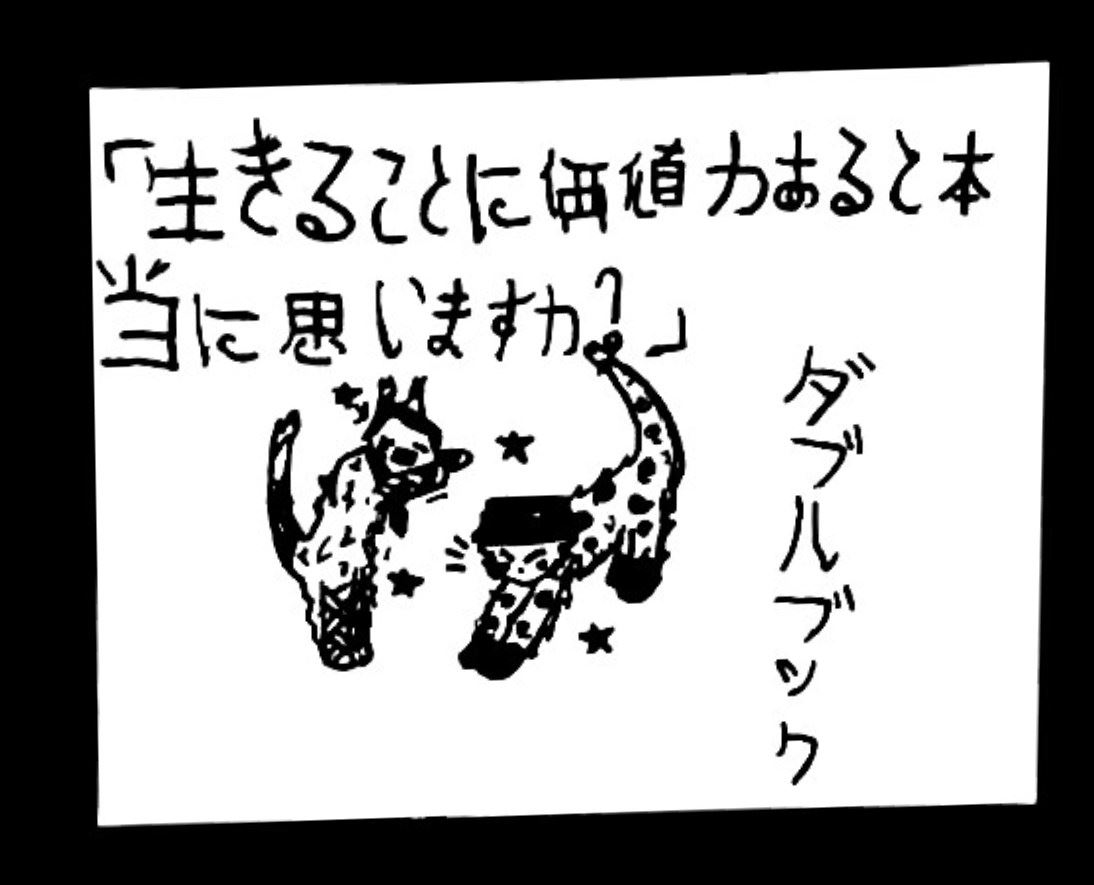 「生きることに価値カあると本
当に思いますカ?」
ダブルブック